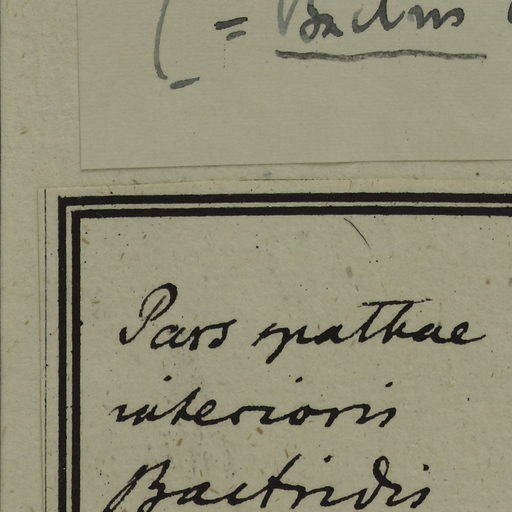 ( = Bactris
Pars spathae
interioris
Bactridis